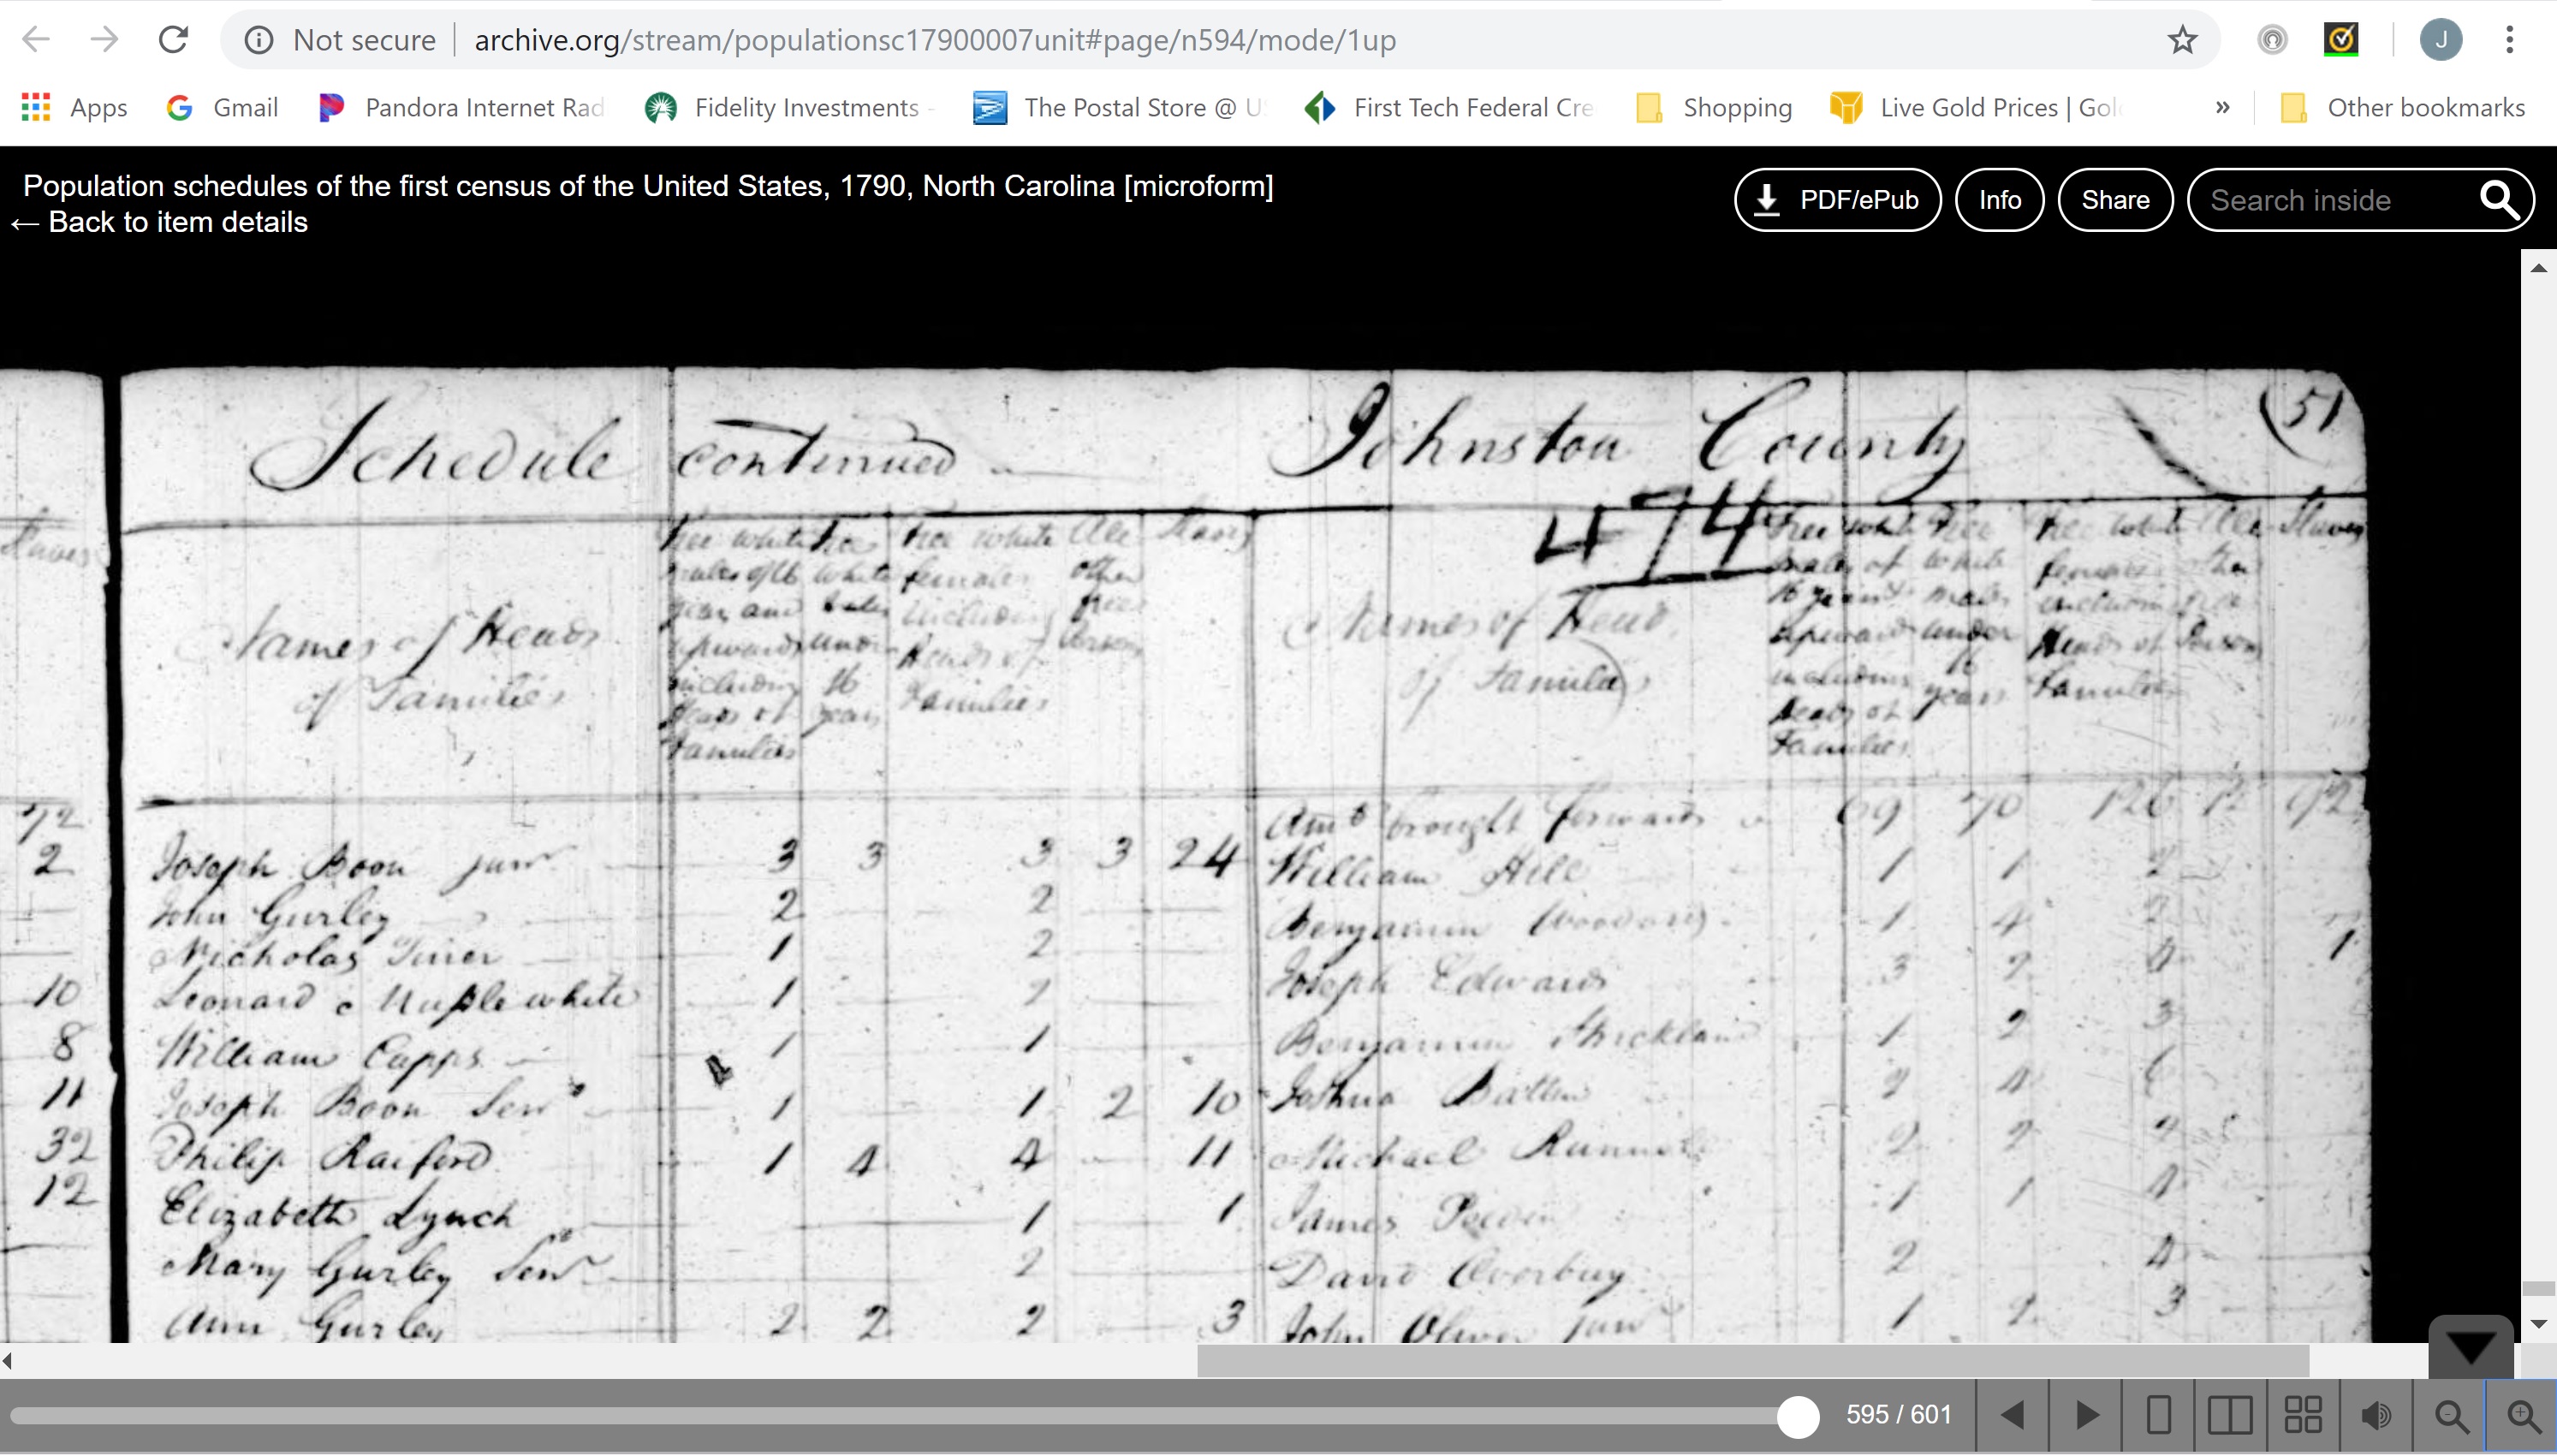 Not secure archive.org/stream/populationsc17900007unit#page/n594/mode/1up J
Apps Gmail Pandora Internet Rad Fidelity Investments - The Postal Store @ U First Tech Federal Cre Shopping Live Gold Prices | Gol » Other bookmarks
Population schedules of the first census of the United States, 1790, North Carolina [microform]
← Back to item details
PDF/ePub Info Share Search inside
Schedule continued Johnston County (51
474
Slaves
Names of Heads
of Families
Free white males of 16 years and upwards including Heads of Families
Free white males under 16 years
Free white females including Heads of Families
All other free Persons
Slaves
Names of Heads
of Families
Free white males of 16 years & upwards including heads of Families
Free white males under 16 years
Free white females including Heads of Families
All other free Persons
Slaves
72
2
10
8
11
32
12
Joseph Boon junr 3 3 3 3 24
John Gurley 2 2
Nicholas 1 2
Leonard 1 2
William Capps 1 1
Joseph Boon Senr 1 1 2 10
Philip Raiford 1 4 4 11
Elizabeth Lynch 1 1
Mary Gurley Senr 2
Ann Gurley 2 2 2 3
Amt brought forwards 69 70 126 12 92
William Hill 1 1 2
Benjamin Woodard 1 4 2
Joseph Edwards 3 2 4 1
Benjamin Strickland 1 2 3
Joshua Batten 2 4 6
Michael 2 2 4
James Peeden 1 1 4
David Overbuy 2 4
John Oliver junr 1 2 3
595 / 601